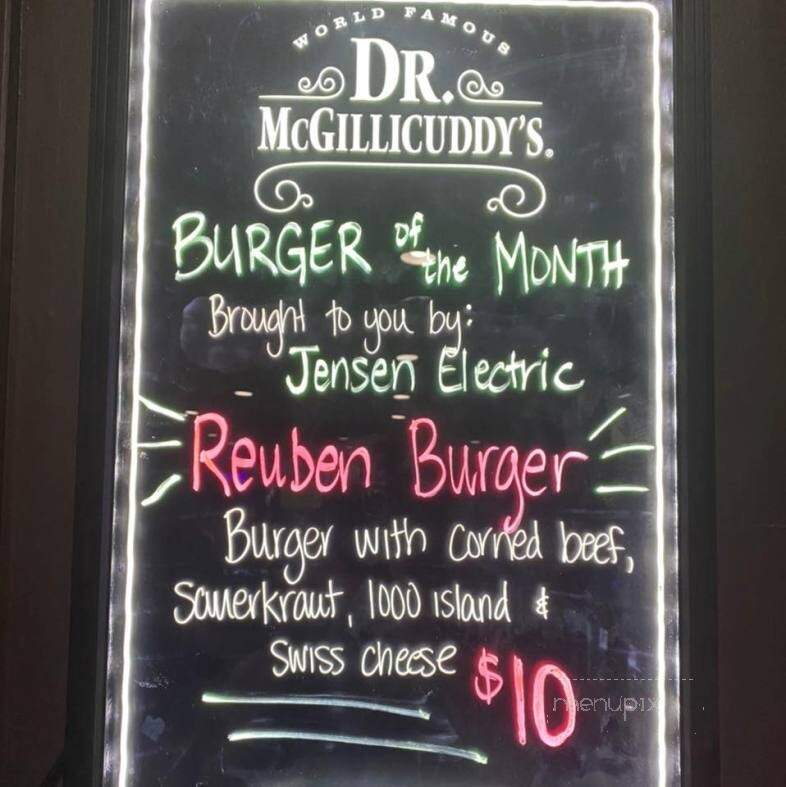 WORLD FAMOUS
DR.
McGILLICUDDY'S.®
BURGER of the MONTH
Brought to you by:
Jensen Electric
Reuben Burger
Burger with corned beef,
Sauerkraut, 1000 island &
Swiss cheese $10
menupix